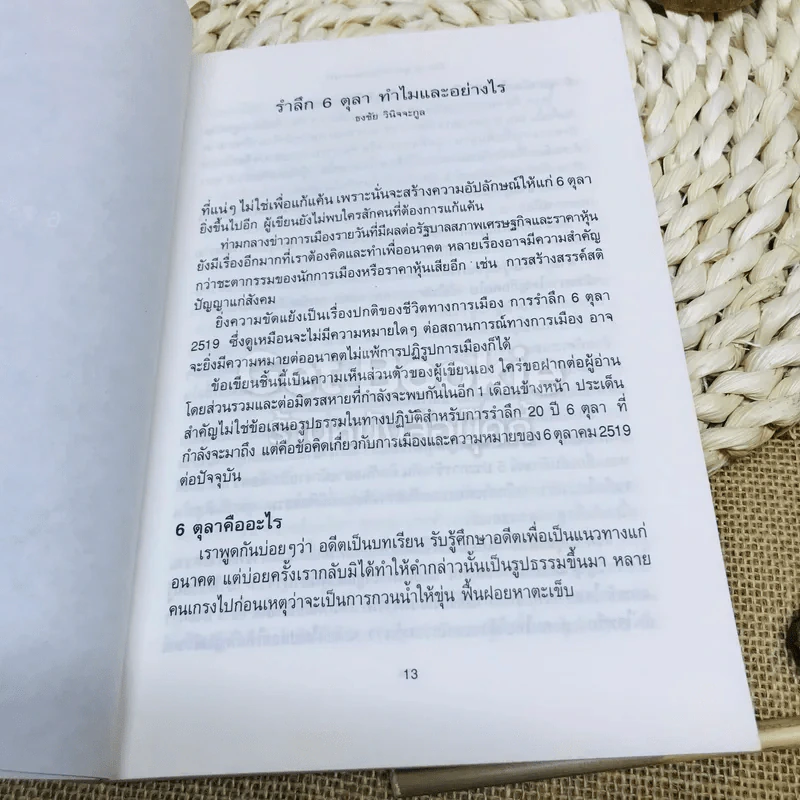 รำลึก 6 ตุลา ทำไมและอย่างไร
ธงชัย วินิจจะกูล
ที่แน่ๆ ไม่ใช่เพื่อแก้แค้น เพราะนั่นจะสร้างความอัปลักษณ์ให้แก่ 6 ตุลา
ยิ่งขึ้นไปอีก ผู้เขียนยังไม่พบใครสักคนที่ต้องการแก้แค้น
ท่ามกลางข่าวการเมืองรายวันที่มีผลต่อรัฐบาลสภาพเศรษฐกิจและราคาหุ้น
ยังมีเรื่องอีกมากที่เราต้องคิดและทำเพื่ออนาคต หลายเรื่องอาจมีความสำคัญ
กว่าชะตากรรมของนักการเมืองหรือราคาหุ้นเสียอีก เช่น การสร้างสรรค์สติ
ปัญญาแก่สังคม
ยิ่งความขัดแย้งเป็นเรื่องปกติของชีวิตทางการเมือง การรำลึก 6 ตุลา
2519 ซึ่งดูเหมือนจะไม่มีความหมายใดๆ ต่อสถานการณ์ทางการเมือง อาจ
จะยิ่งมีความหมายต่ออนาคตไม่แพ้การปฏิรูปการเมืองก็ได้
ข้อเขียนชิ้นนี้เป็นความเห็นส่วนตัวของผู้เขียนเอง ใคร่ขอฝากต่อผู้อ่าน
โดยส่วนรวมและต่อมิตรสหายที่กำลังจะพบกันในอีก 1 เดือนข้างหน้า ประเด็น
สำคัญไม่ใช่ข้อเสนอรูปธรรมในทางปฏิบัติสำหรับการรำลึก 20 ปี 6 ตุลา ที่
กำลังจะมาถึง แต่คือข้อคิดเกี่ยวกับการเมืองและความหมายของ 6 ตุลาคม 2519
ต่อปัจจุบัน
6 ตุลาคืออะไร
เราพูดกันบ่อยๆว่า อดีตเป็นบทเรียน รับรู้ศึกษาอดีตเพื่อเป็นแนวทางแก่
อนาคต แต่บ่อยครั้งเรากลับมิได้ทำให้คำกล่าวนั้นเป็นรูปธรรมขึ้นมา หลาย
คนเกรงไปก่อนเหตุว่าจะเป็นการกวนน้ำให้ขุ่น ฟื้นฝอยหาตะเข็บ
13